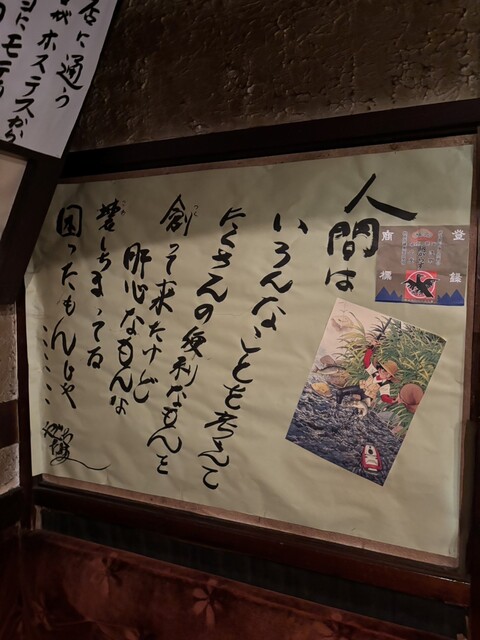 人間は
いろんなことを考えて
たくさんの便利なもんを
創って来たけど
肝心なもんな
壊しちまってる
困ったもんじゃ……
登録
商標
に通う
がホステスから
にモテ